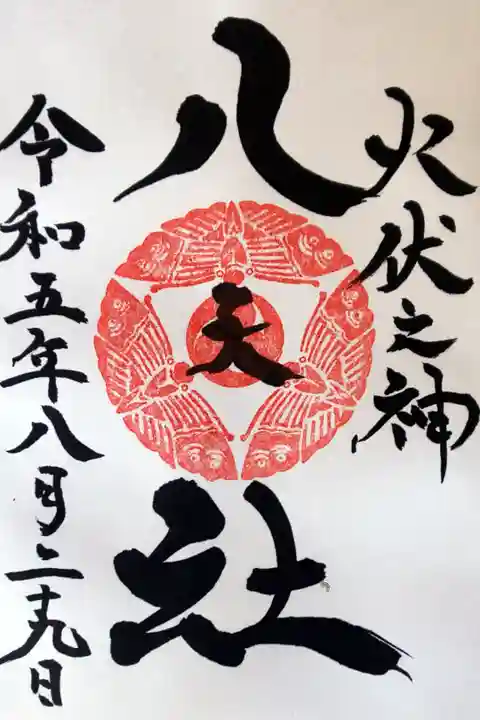 火伏之神
八天社
令和五年八月二十九日